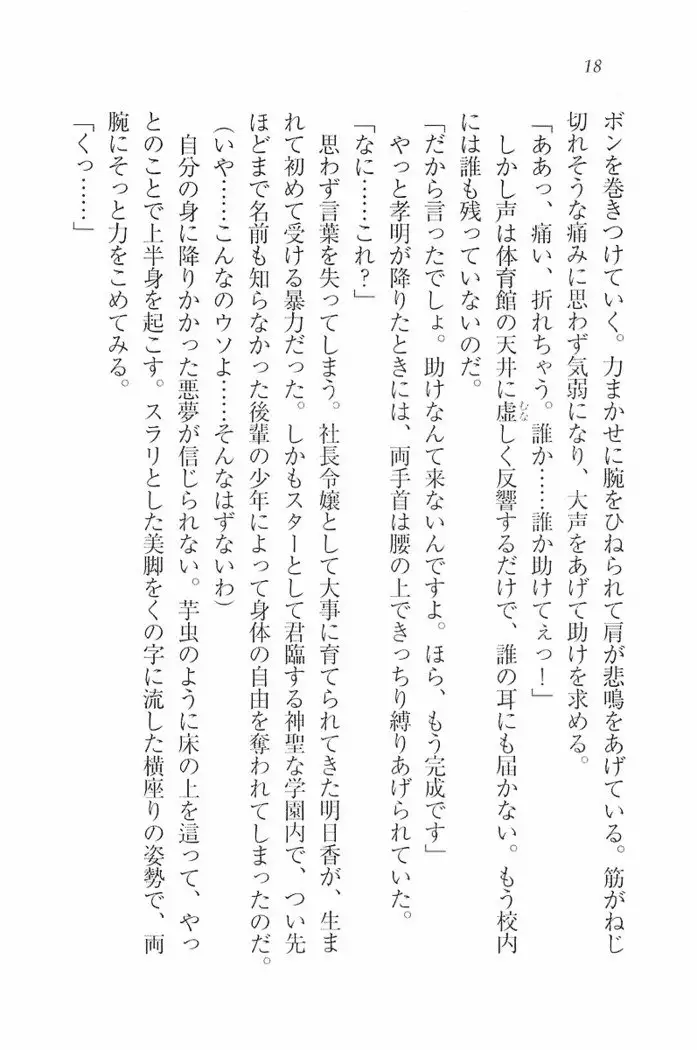 18
ボンを巻きつけていく。力まかせに腕をひねられて肩が悲鳴をあげている。筋がねじ
切れそうな痛みに思わず気弱になり、大声をあげて助けを求める。
「ああっ、痛い、折れちゃう。誰か……誰か助けてぇっ！」
しかし声は体育館の天井に虚しく反響するだけで、誰の耳にも届かない。もう校内
むな
には誰も残っていないのだ。
「だから言ったでしょ。助けなんて来ないんですよ。ほら、もう完成です」
やっと孝明が降りたときには、両手首は腰の上できっちり縛りあげられていた。
「なに……これ？」
思わず言葉を失ってしまう。社長令嬢として大事に育てられてきた明日香が、生ま
れて初めて受ける暴力だった。しかもスターとして君臨する神聖な学園内で、つい先
ほどまで名前も知らなかった後輩の少年によって身体の自由を奪われてしまったのだ。
(いや……こんなのウソよ……そんなはずないわ)
自分の身に降りかかった悪夢が信じられない。芋虫のように床の上を這って、やっ
とのことで上半身を起こす。スラリとした美脚をくの字に流した横座りの姿勢で、両
腕にそっと力をこめてみる。
「くっ……」